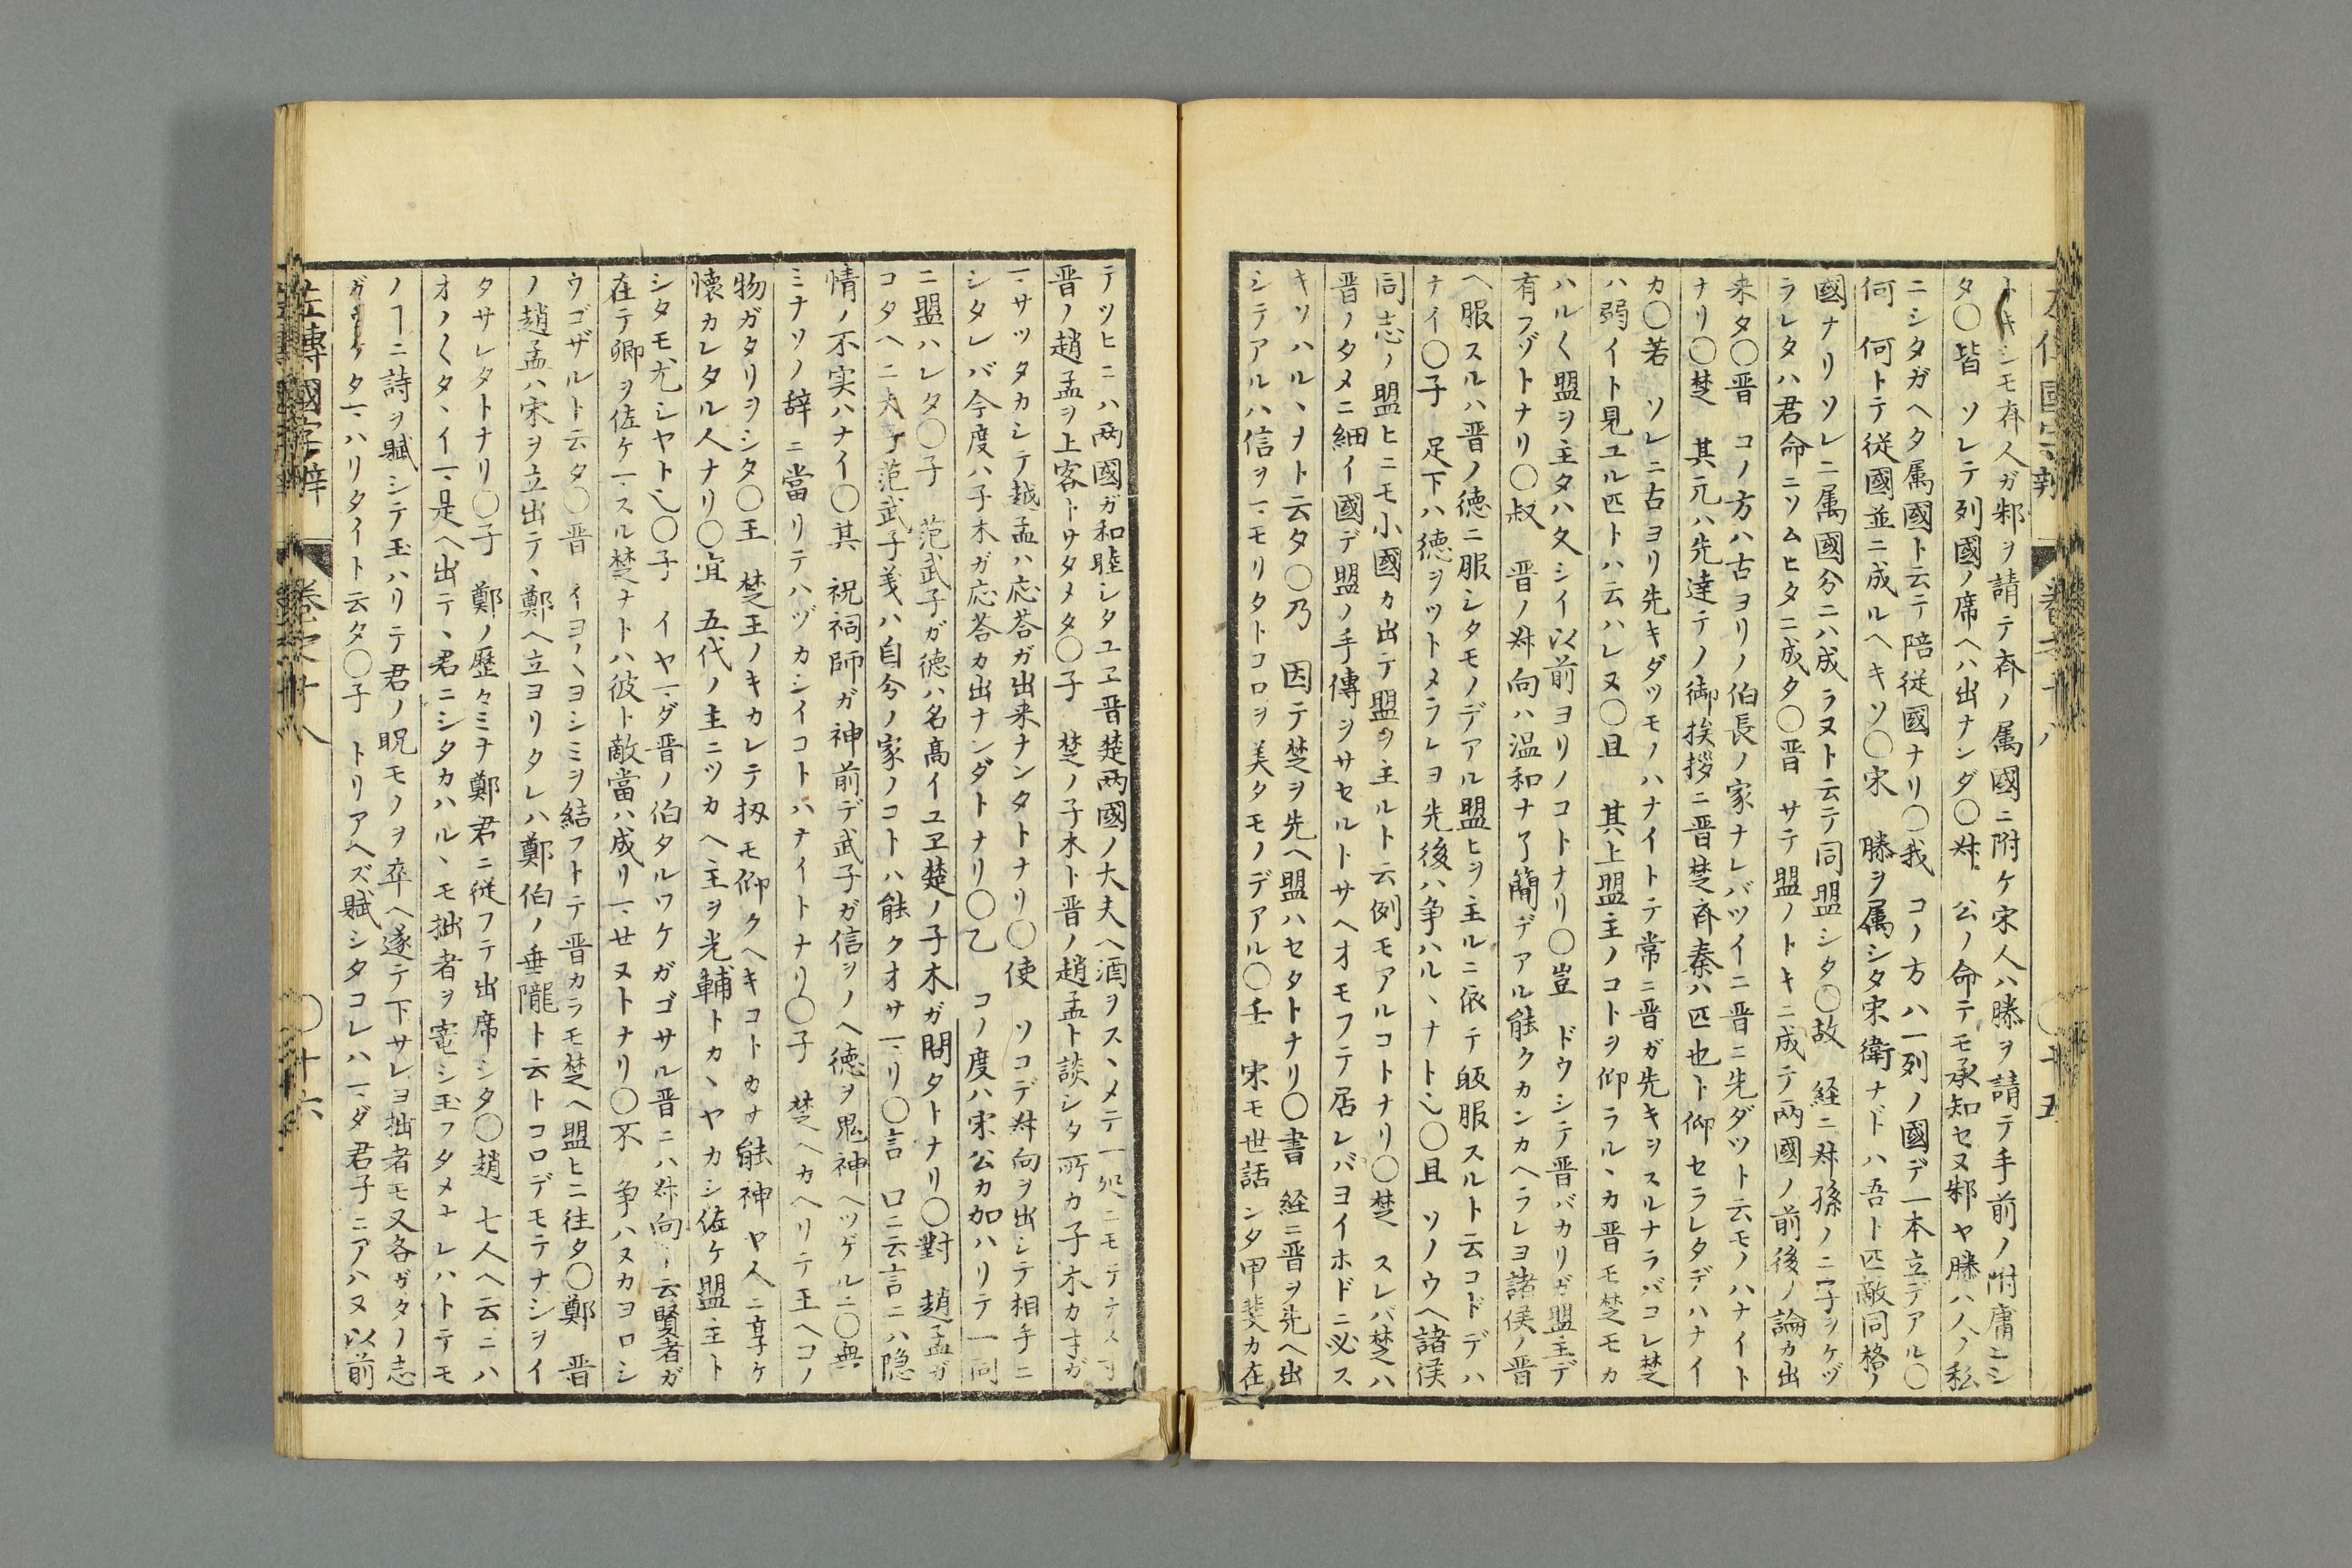 トキシモ齊人ガ邾ヲ請テ齊ノ属國ニ附ケ宋人ハ滕ヲ請テ手前ノ附庸ニシ
タ〇皆　ソレテ列國ノ席ヘハ出ナンダ〇叔　公ノ命テモ承知セヌ邾ヤ滕ハ人ノ私
ニシタガヘタ属國ト云テ陪従國ナリ〇我　コノ方ハ一列ノ國デ一本立デアル〇
何　何トテ従國並ニ成ルヘキソ〇宋　滕ヲ属シタ宋衛ナドハ吾ト匹敵同格ノ
國ナリソレニ属國分ニハ成ラヌト云テ同盟シタ〇故　経ニ叔孫ノ二字ヲケヅ
ラレタハ君命ニソムヒタニ成タ〇晋　サテ盟ノトキニ成テ兩國ノ前後ノ論カ出
来タ〇晋　コノ方ハ古ヨリノ伯長ノ家ナレバツイニ晋ニ先ダツト云モノハナイト
ナリ〇楚　其元ハ先達テノ御挨拶ニ晋楚齊秦ハ匹也ト仰セラレタデハナイ
カ〇若　ソレニ古ヨリ先キダツモノハナイトテ常ニ晋ガ先キヲスルナラバコレ楚
ハ弱イト見ユル匹トハ云ハレヌ〇且　其上盟主ノコトヲ仰ラル丶カ晋モ楚モカ
ハル〱盟ヲ主タハ久シイ以前ヨリノコトナリ〇豈　ドウシテ晋バカリガ盟主デ
有フゾトナリ〇叔　晋ノ叔向ハ温和ナ了簡デアル能クカンカヘラレヨ諸侯ノ晋
ヘ服スルハ晋ノ徳ニ服シタモノデアル盟ヒヲ主ルニ依テ皈服スルト云コドデハ
ナイ〇子　足下ハ徳ヲツトメラレヨ先後ハ争ハル丶ナト〇且　ソノウヘ諸侯
同志ノ盟ヒニモ小國カ出テ盟ヲ主ルト云例モアルコトナリ〇楚　スレバ楚ハ
晋ノタメニ細イ國デ盟ノ手傳ヲサセルトサヘオモフテ居レバヨイホドニ必ス
キソハル丶ナト云タ〇乃　因テ楚ヲ先ヘ盟ハセタトナリ〇書　経ニ晋ヲ先ヘ出
シテアルハ信ヲ一モリタトコロヲ美タモノデアル〇壬　宋モ世話シタ甲斐カ在
テツヒニハ兩國ガ和睦シタユヱ晋楚兩國ノ大夫ヘ酒ヲス丶メテ一処ニモテナス
晋ノ趙孟ヲ上客トサタメタ〇子　楚ノ子木ト晋ノ趙孟ト談シタ所カ子木カ才ガ
一サツタカシテ趙孟ハ応荅ガ出来ナンタトナリ〇使　ソコデ叔向ヲ出シテ相手ニ
シタレバ今度ハ子木ガ応荅カ出ナンダトナリ〇乙　コノ度ハ宋公カ加ハリテ一同
ニ盟ハレタ〇子　范武子ガ徳ハ名高イユヱ楚ノ子木ガ問タトナリ〇對　趙孟ガ
コタヘニ夫子范武子義ハ自分ノ家ノコトハ能クオサ一リ〇言　口ニ云言ニハ隠
情ノ不実ハナイ〇其　祝祠師ガ神前デ武子ガ信ヲノヘ徳ヲ鬼神ヘツゲルニ〇無
ミナソノ辞ニ當リテハヅカシイコトハナイトナリ〇子　楚ヘカヘリテ王ヘコノ
物ガタリヲシタ〇王　楚王ノキカレテ扨モ仰クヘキコトカナ能神ヤ人ニ享ケ
懐カレタル人ナリ〇宜　五代ノ主ニツカヘ主ヲ光輔トカ丶ヤカシ佐ケ盟主ト
シタモ尤シヤト〇子　イヤ一ダ晋ノ伯タルワケガゴサル晋ニハ叔向ト云賢者ガ
在テ卿ヲ佐ケ一スル楚ナトハ彼ト敵當ハ成リ一セヌトナリ〇不　争ハヌカヨロシ
ウゴザルト云タ〇晋　イヨ〱ヨシミヲ結フトテ晋カラモ楚ヘ盟ヒニ往タ〇鄭　晋
ノ趙孟ハ宋ヲ立出テ丶鄭ヘ立ヨリタレハ鄭伯ノ垂隴ト云トコロデモテナシヲイ
タサレタトナリ〇子　鄭ノ歴々ミナ鄭君ニ従フテ出席シタ〇趙　七人ヘ云ニハ
オノ〱タ丶イ一是ヘ出テ丶君ニシタカハル丶モ拙者ヲ寵シ玉フタメナレハトテモ
ノコトニ詩ヲ賦シテ玉ハリテ君ノ貺モノヲ卒ヘ遂テ下サレヨ拙者モ又各ガタノ志
ガ　ケタ一ハリタイト云タ〇子　トリアヘズ賦シタコレハ一ダ君子ニアハヌ以前
左傳國字辯　卷之十八　〇十六